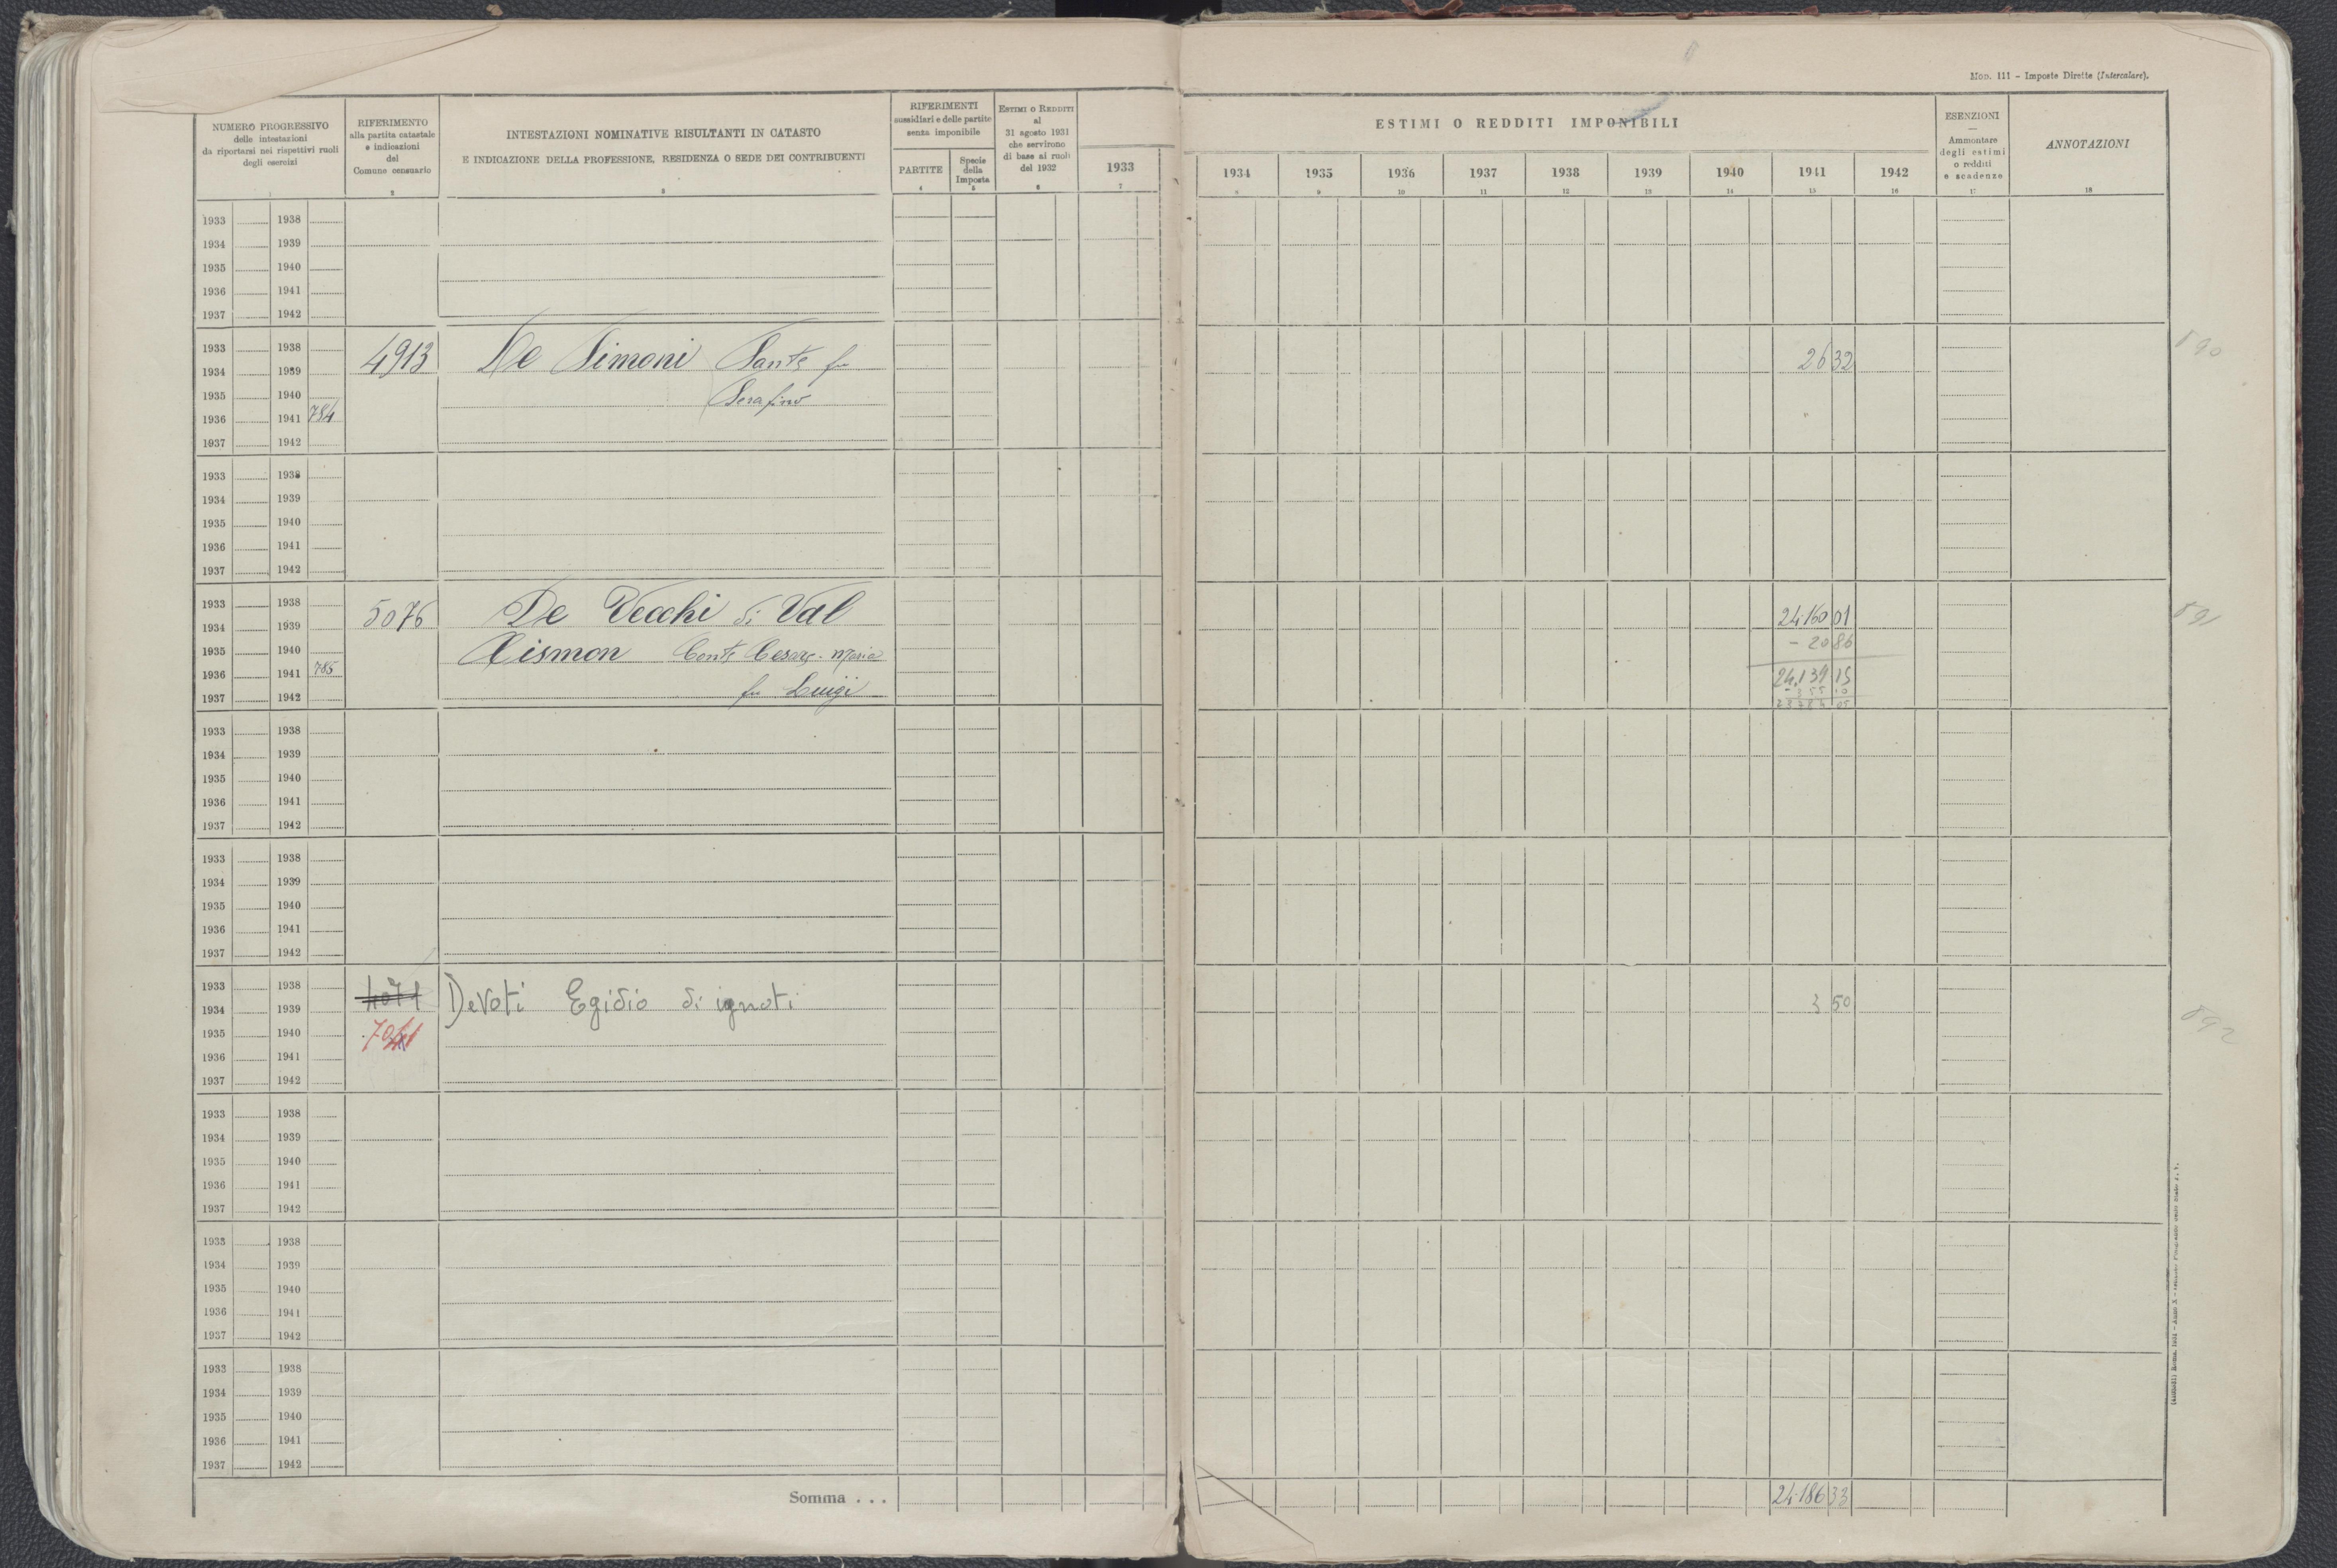 MOD. 111 - Imposte Dirette (Intercalare).
NUMERO PROGRESSIVO
delle intestazioni
da riportarsi nei rispettivi ruoli
degli esercizi
1
RIFERIMENTO
alla partita catastale
e indicazioni
del
Comune censuario
2
INTESTAZIONI NOMINATIVE RISULTANTI IN CATASTO
E INDICAZIONE DELLA PROFESSIONE, RESIDENZA O SEDE DEI CONTRIBUENTI
3
RIFERIMENTI
sussidiari e delle partite
senza imponibile
PARTITE
4
Specie
della
Imposta
5
ESTIMI O REDDITI
al
31 agosto 1931
che servirono
di base ai ruoli
del 1932
6
1933
7
ESTIMI O REDDITI IMPONIBILI
1934 1935 1936 1937 1938 1939 1940 1941 1942
8 9 10 11 12 13 14 15 16
ESENZIONI
Ammontare
degli estimi
o redditi
e scadenze
17
ANNOTAZIONI
18
1933 1938
1934 1939
1935 1940
1936 1941
1937 1942
1933 1938
1934 1939 4913 De Simoni Sante fu 26 32 890
1935 1940 Serafino
1936 1941 784
1937 1942
1933 1938
1934 1939
1935 1940
1936 1941
1937 1942
1933 1938
1934 1939 5076 De Vecchi di Val 24.160 01 891
1935 1940 Cismon Conte Cesare-Maria - 20 86
1936 1941 785 24.139 15
1937 1942 fu Luigi - 355 10
23784 05
1933 1938
1934 1939
1935 1940
1936 1941
1937 1942
1933 1938
1934 1939
1935 1940
1936 1941
1937 1942
1933 1938
1934 1939 4071 Devoti Egidio di ignoti 3 50 892
1935 1940
1936 1941
1937 1942
1933 1938
1934 1939
1935 1940
1936 1941
1937 1942
1933 1938
1934 1939
1935 1940
1936 1941
1937 1942
1933 1938
1934 1939
1935 1940
1936 1941
1937 1942
Somma . . . 24.186 33